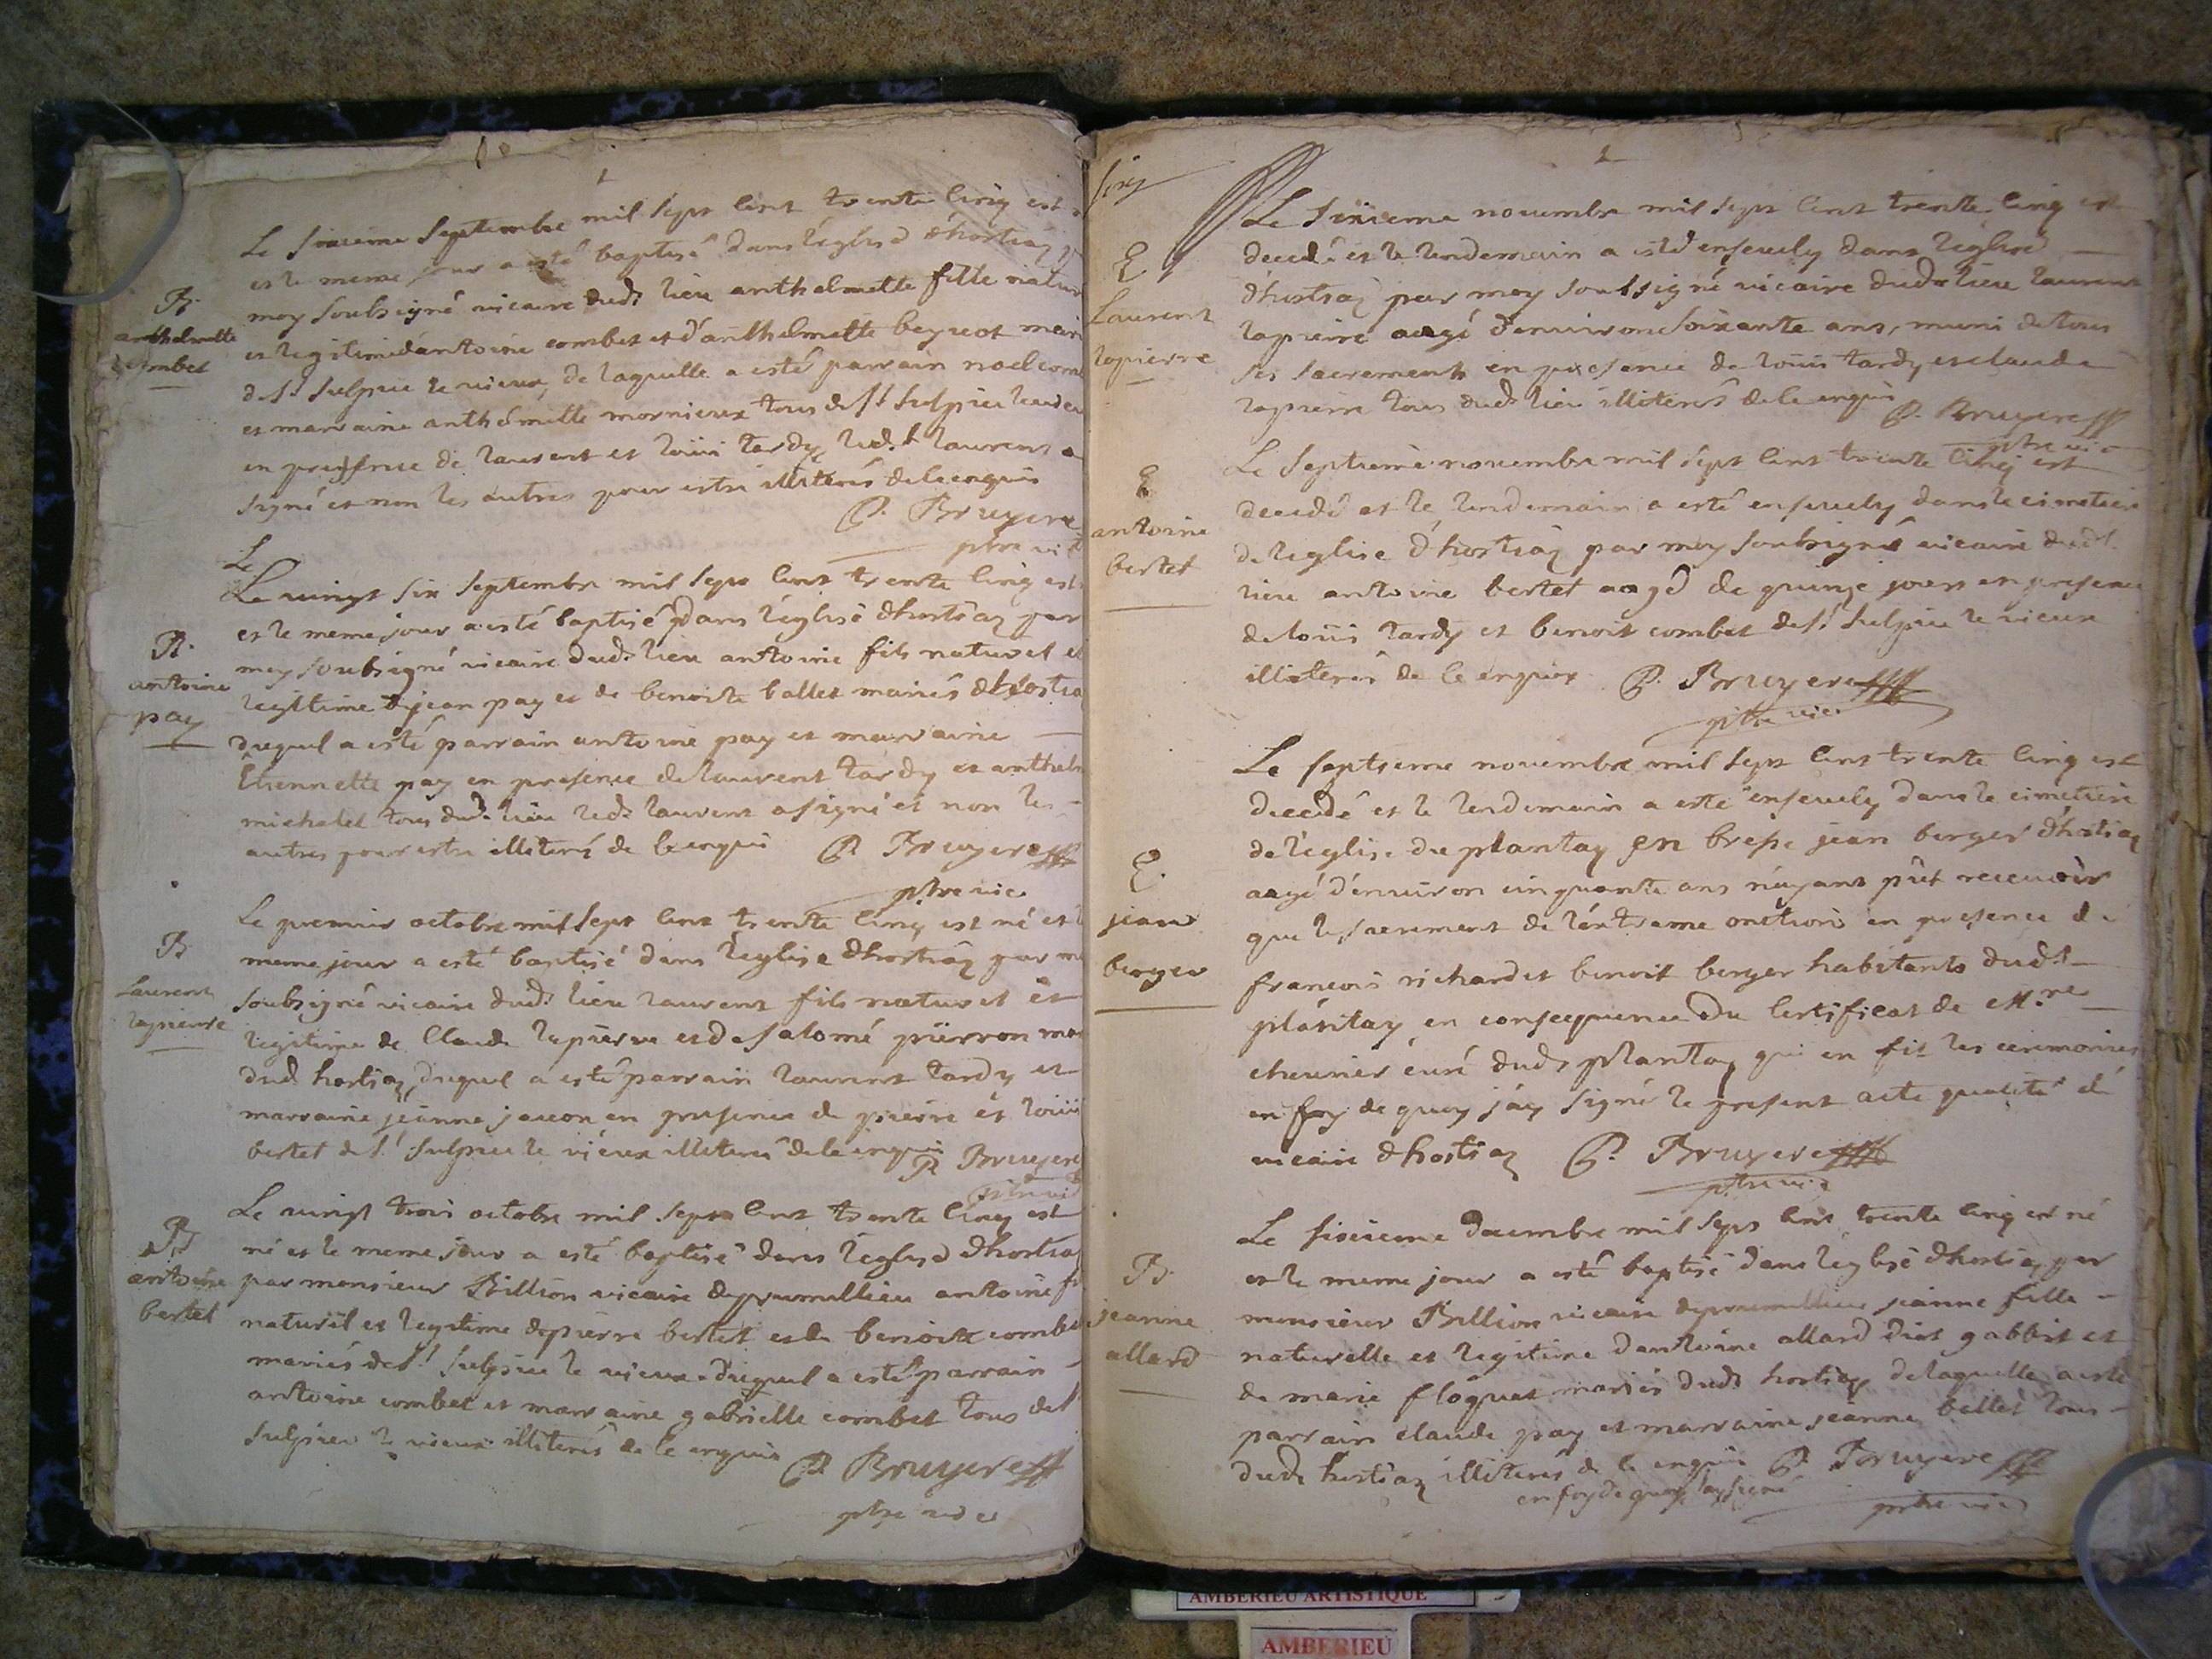 Le sixieme septembre mil sept cent trente cinq est
et le meme jour a esté baptisé dans l'église d'hostiaz
moy soubsigné vicaire dud. lieu anthelmette fille natur
et legitime d'antoine combet et d'anthelmette beyvot mari
de St sulpice le vieux, de laquelle a esté parrain noel com
et marraine anthelmette mornieux tous de St sulpice le vieux
en presence de laurent et loüis tardy led. laurent a
signé et non les autres pour estre illiterés de ce enquis
P. Bruyere
ptre vic
B.
anthelmette
combet
Le
Le vingt six septembre mil sept cent trente cinq est
et le meme jour a esté baptisé dans l'église d'hostiaz par
moy soubsigné vicaire dud. lieu antoine fils naturel et
legitime de jean pay et de benoite ballet mariés d'hostia
duquel a esté parrain antoine pay et marraine
Etiennette pay en presence de laurent tardy et anthel
michalet tous dud. lieu led. laurent a signé et non les
autres pour estre illiterés de ce enquis P. Bruyere
ptre vic
B.
antoine
pay
Le premier octobre mil sept cent trente cinq est né et
meme jour a esté baptisé dans l'église d'hostiaz par m
soubsigné vicaire dud. lieu laurent fils naturel et
legitime de Claude lapierre et de salomé pierron mar
dud hostiaz, duquel a esté parrain laurent tardy et
marraine jeanne jaucon en presence de pierre et loüis
bertet de St sulpice le vieux illiterés de ce enquis P. Bruyere
ptre vic
B
Laurent
lapierre
Le vingt trois octobre mil sept cent trente cinq est
né et le meme jour a esté baptisé dans l'église d'hostiaz
par monsieur Billion vicaire de prumillieu antoine fi
naturel et legitime de pierre bertet et de benoite combe
mariés de St sulpice le vieux duquel a esté parrain
antoine combet et marraine gabrielle combet tous de St
sulpice le vieux illiterés de ce enquis P. Bruyere
ptre vic
B
antoine
bertet
Le sixieme novembre mil sept cent trente cinq est
decedé et le lendemain a esté ensevely dans l'église
d'hostiaz par moy soussigné vicaire dud. lieu laurent
lapierre aagé d'environ soixante ans, muni de tous
ses sacrements en presence de loüis tardy et claude
lapierre tous dud. lieu illiterés de ce enquis P. Bruyere
ptre vic
E
Laurent
lapierre
Le septieme novembre mil sept cent trente cinq est
decedé et le lendemain a esté ensevely dans le cimetiere
de l'eglise d'hostiaz par moy soubsigné vicaire dud.
lieu antoine bertet aagé de quinze jours en presence
de loüis tardy et benoit combet de St sulpice le vieux
illiterés de ce enquis P. Bruyere
ptre vic
E
antoine
bertet
Le septieme novembre mil sept cent trente cinq est
decedé et le lendemain a esté ensevely dans le cimetiere
de l'église du plantay en bresse jean berger d'hostiaz
aagé d'environ cinquante ans n'ayant pût recevoir
que le sacrement de l'extreme onction en presence de
francois richard et benoit berger habitants dud.
plantay en consequence du certificat de M.re
chevrier curé dud. plantay qui en fit les ceremonies
en foy de quoy j'ay signé le present acte qualité de
vicaire d'hostiaz P. Bruyere
ptre vic
E.
jean
berger
Le sixieme decembre mil sept cent trente cinq est né
et le meme jour a esté baptisé dans l'église d'hostiaz par
monsieur Billion vicaire de prumillieu jeanne fille
naturelle et legitime d'antoine allard dict gabbit et
de marie floquet mariés dud. hostiaz de laquelle a esté
parrain claude pay et marraine jeanne ballet tous
dud. hostiaz illiterés de ce enquis P. Bruyere
en foy de quoy j'ay signé
ptre vic
B.
jeanne
allard
AMBERIEU ARTISTIQUE
AMBERIEU